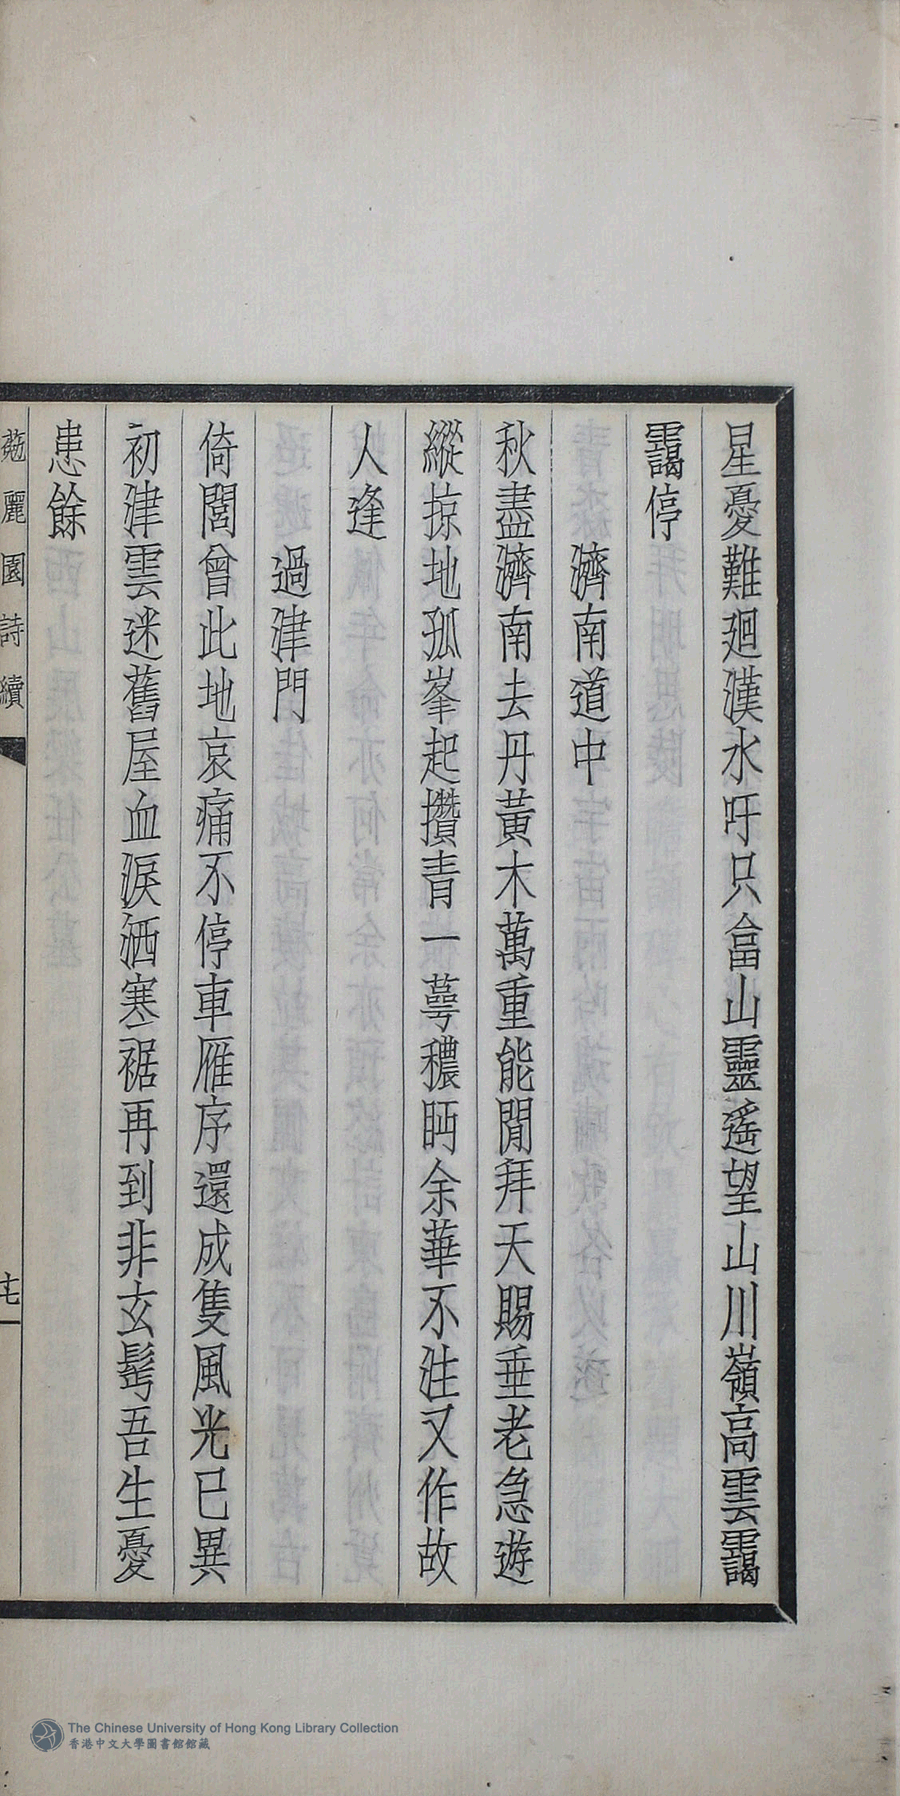 星憂難廻漢水吁只畣山靈遙望山川嶺高雲靄
靄停
濟南道中
秋盡濟南去丹黃木萬重能閒拜天賜垂老急遊
縱掠地孤峯起攢青一萼穠眄余華不注又作故
人逢
過津門
倚閭曾此地哀痛不停車雁序還成隻風光已異
初津雲迷舊屋血淚洒寒裾再到非玄髩吾生憂
患餘
菀麗園詩續
十七
The Chinese University of Hong Kong Library Collection
香港中文大學圖書館館藏